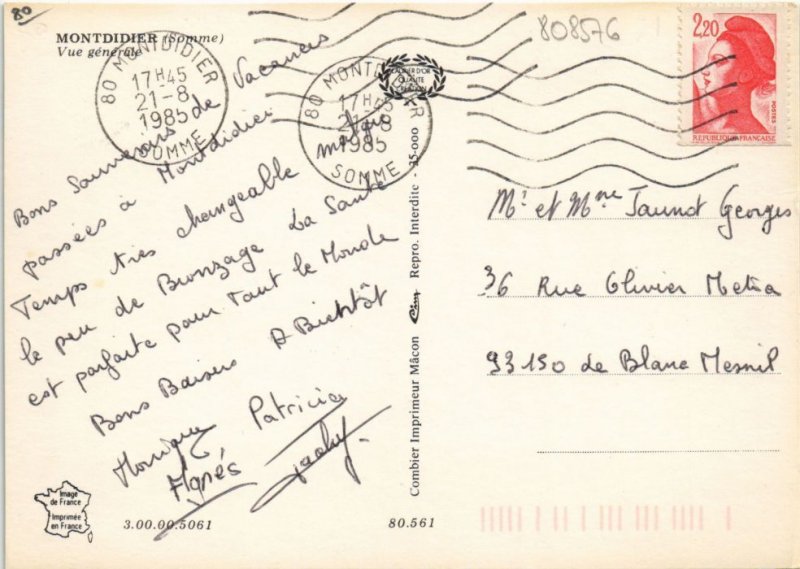 80
MONTDIDIER (Somme)
Vue générale
80 MONTDIDIER
17H45
21-8
1985
SOMME
80 MONTDIDIER
17H45
21-8
1985
SOMME
LAURIER D'OR
QUALITÉ
CRÉATION
808576
2,20
POSTES
REPUBLIQUE FRANÇAISE
Bons Souvenirs de Vacances
passées à Montdidier
Temps très changeable malgré
le peu de Bronzage La Santé
est parfaite pour Tout le Monde
Bons Baisers A Bientôt
Monique Patricia
Agnés Jacky
Combier Imprimeur Mâcon Cim Repro. Interdite - 35-000
Mr et Mme Jaunot Georges
36 Rue Olivier Metra
93150 de Blanc Mesnil
Image
de France
Imprimée
en France
3.00.00.5061
80.561